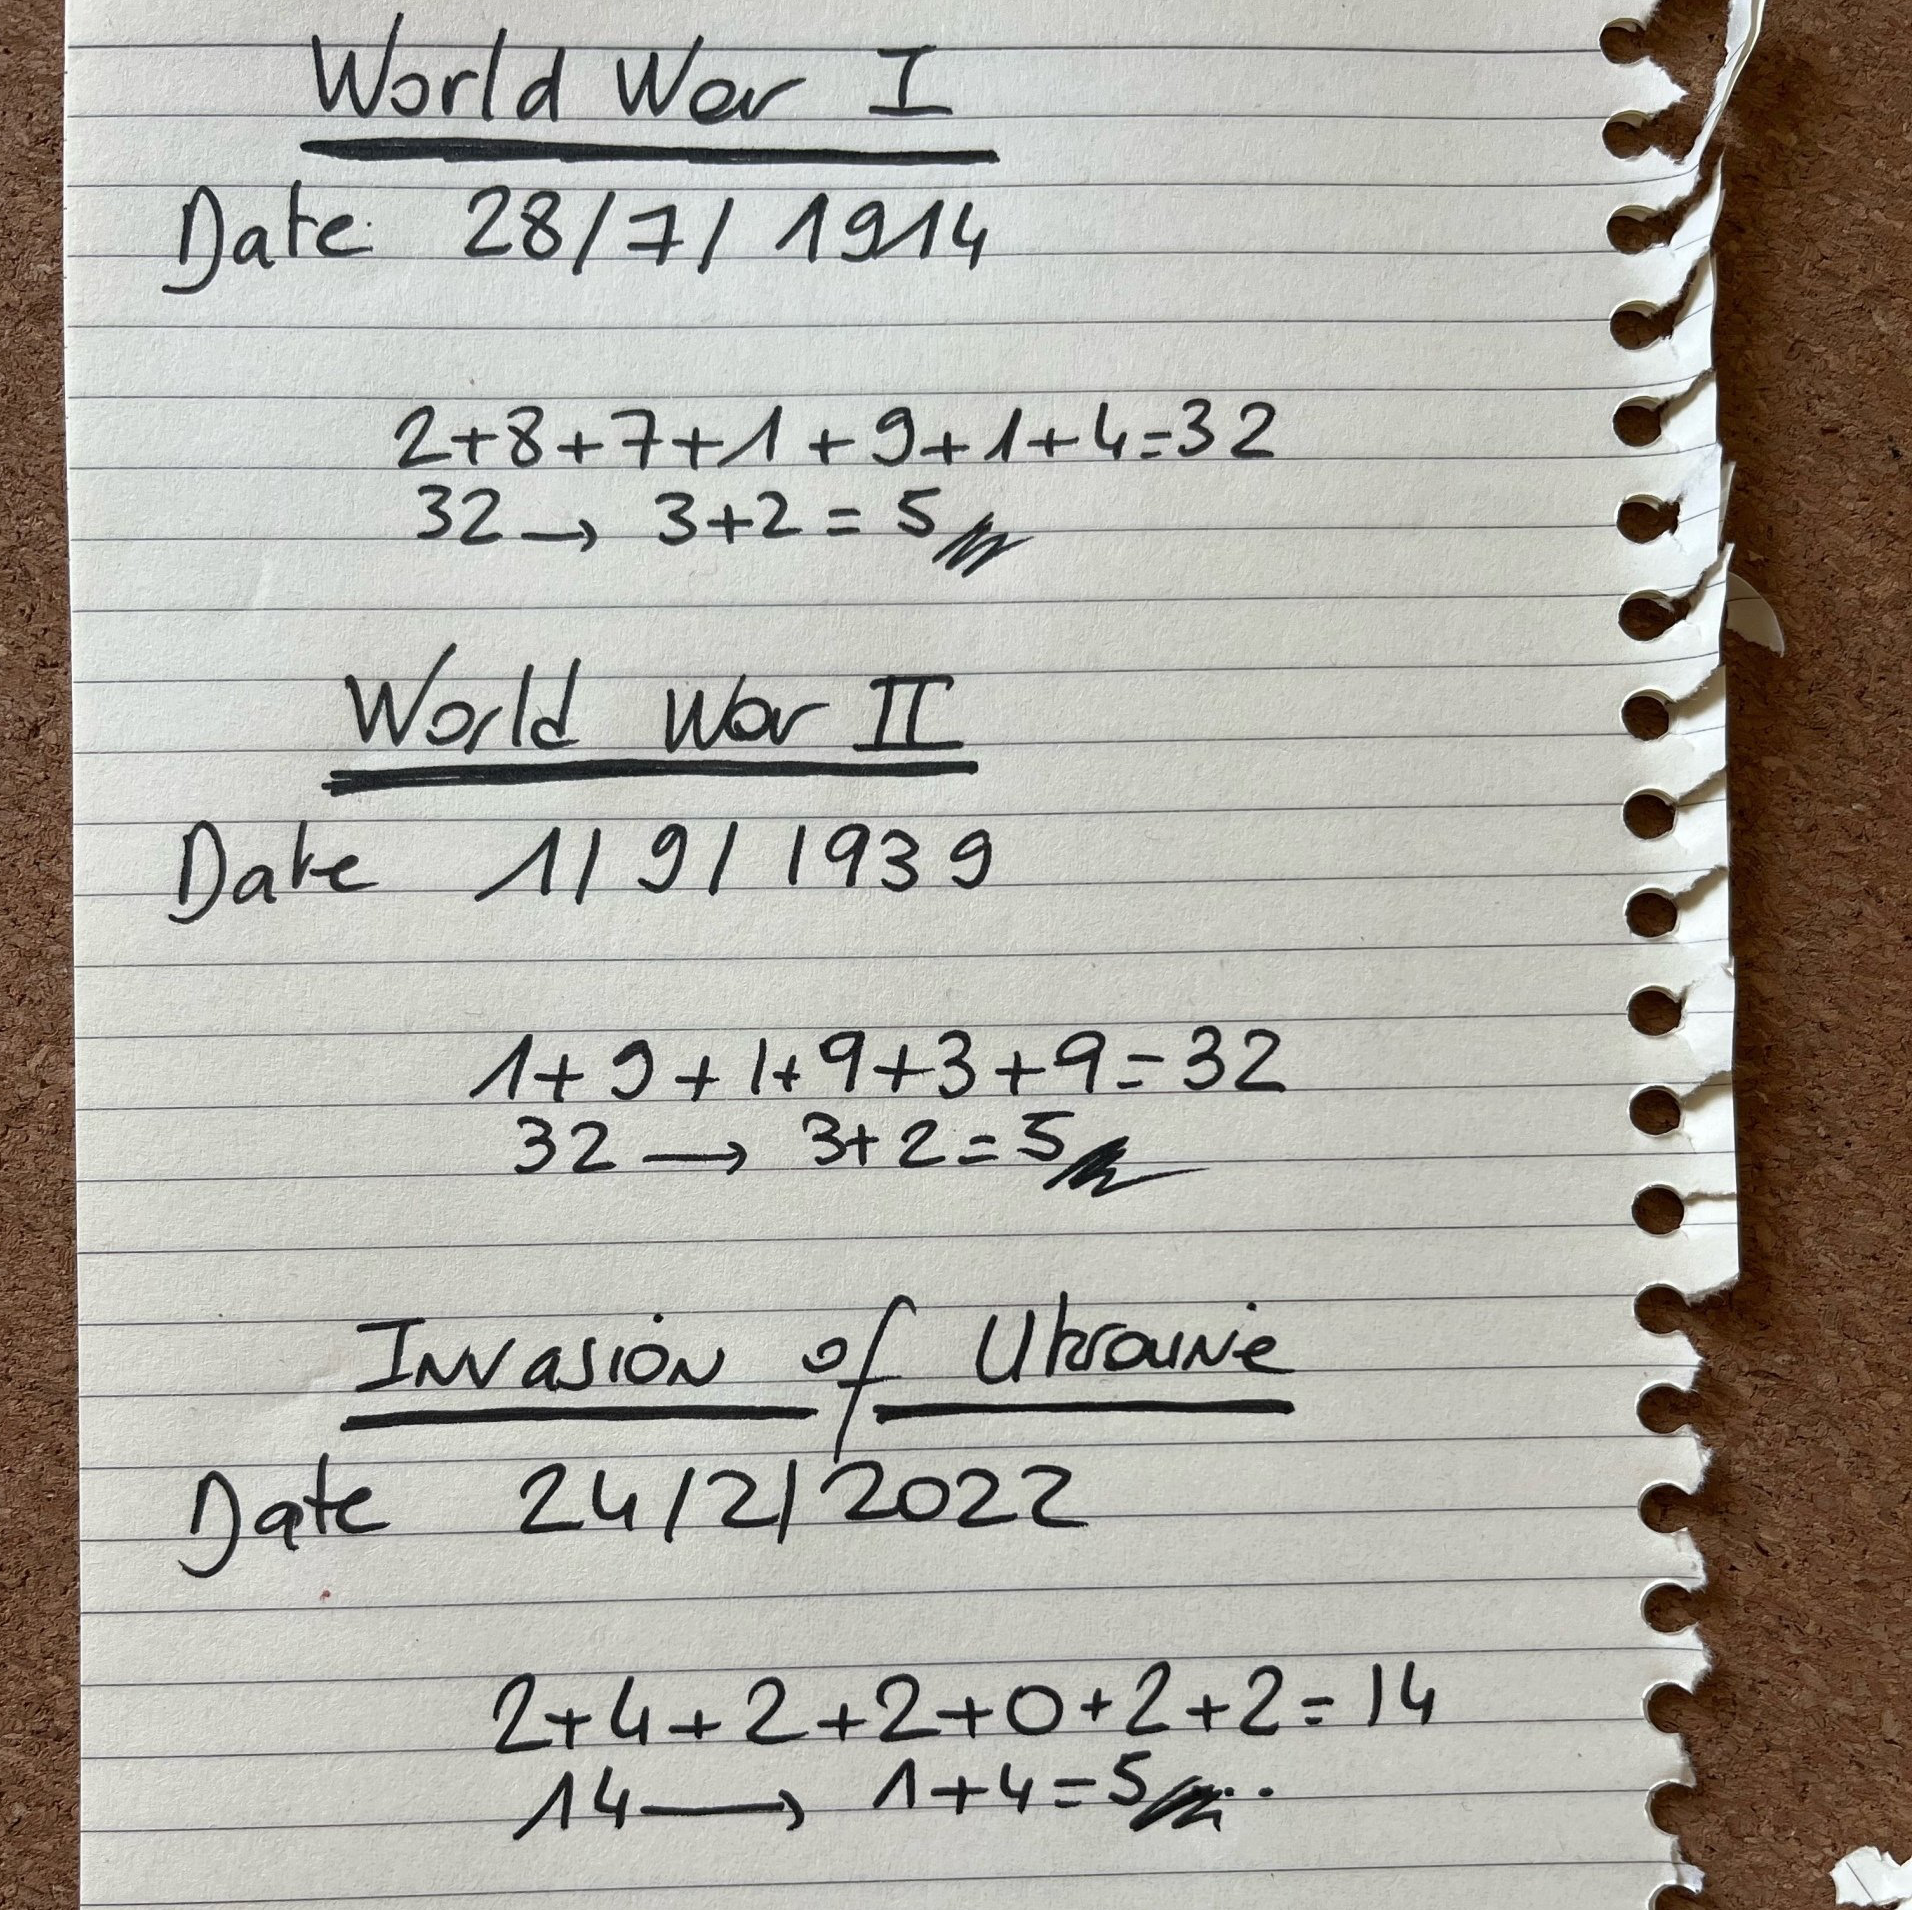 World War I
Date 28/7/1914
2+8+7+1+9+1+4=32
32 → 3+2=5
World War II
Date 1/9/1939
1+9+1+9+3+9=32
32 → 3+2=5
Invasion of Ukraine
Date 24/2/2022
2+4+2+2+0+2+2=14
14 → 1+4=5